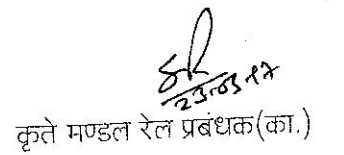 23-03-17
कृते मण्डल रेल प्रबंधक(का.)